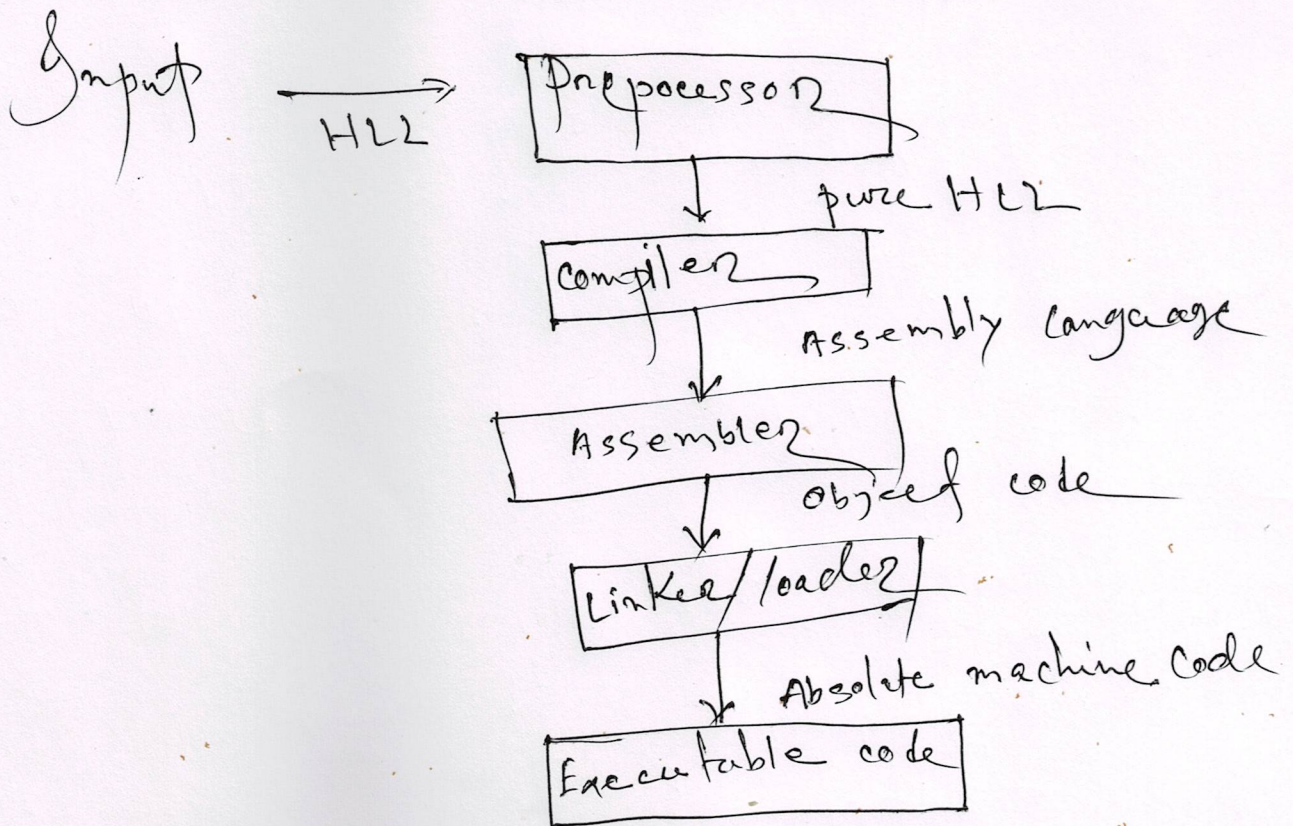 Input
HLL
Prepocessor
pure HLL
compiler
Assembly Language
Assembler
Object code
Linker/loader
Absolute machine code
Executable code